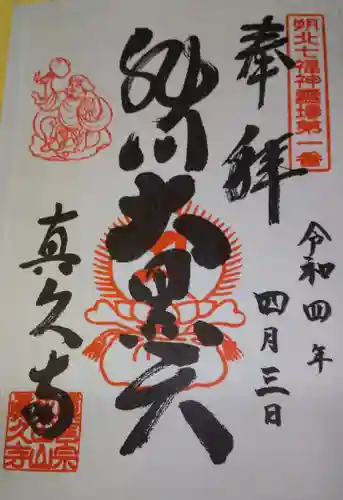 朔北七福神霊場第一番
奉拝
令和四年
四月三日
旭川大黒天
真久寺